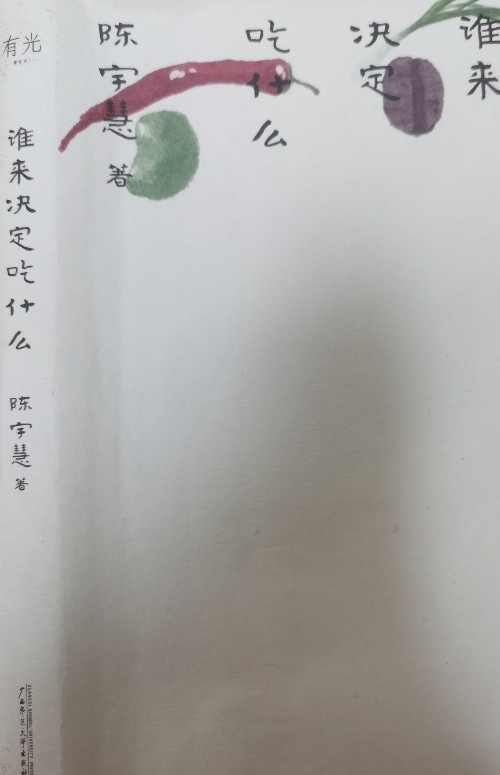 谁来
决定
吃什么
陈宇慧 著
有光
谁来决定吃什么
陈宇慧 著
广西师范大学出版社